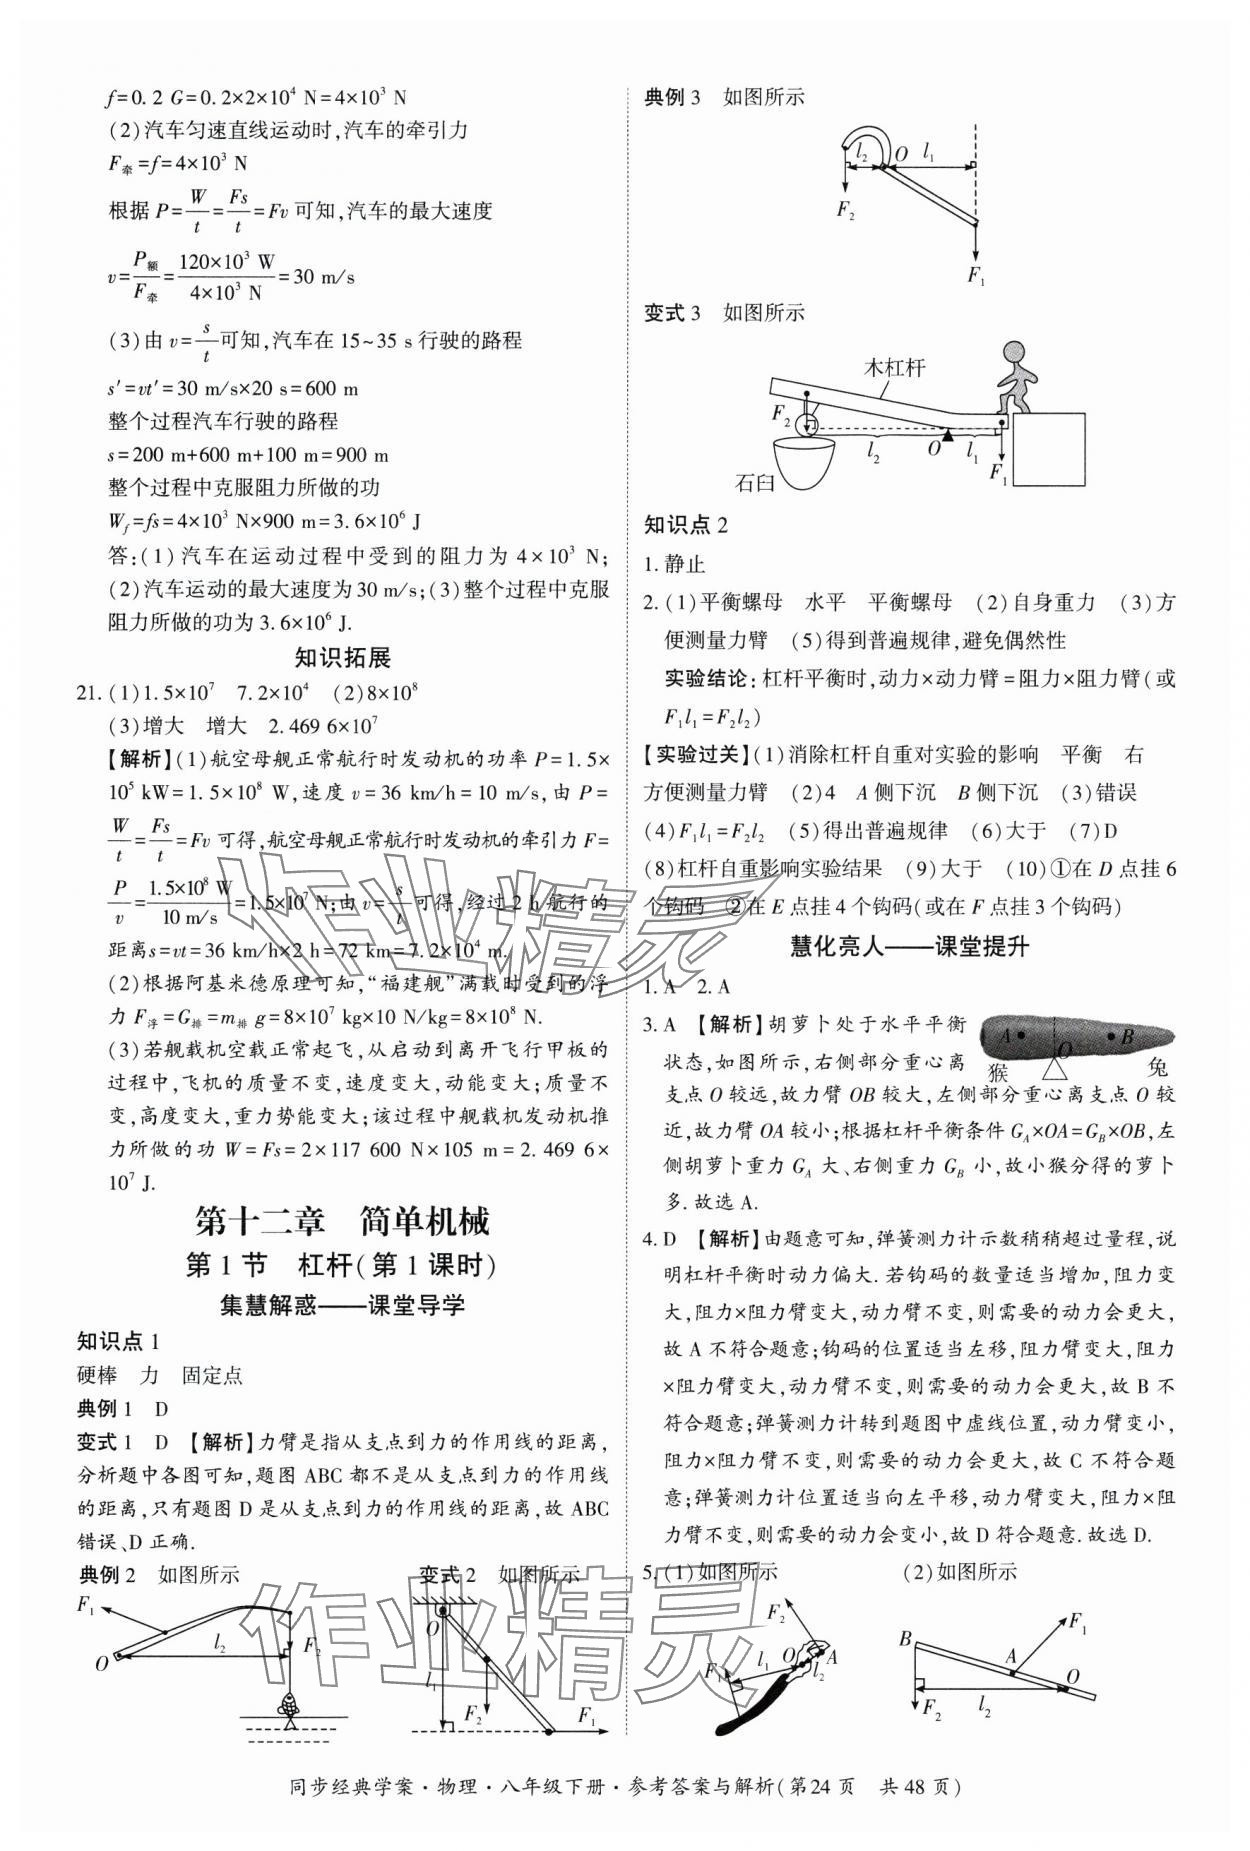 f=0.2 G=0.2×2×10⁴ N=4×10³ N
(2)汽车匀速直线运动时,汽车的牵引力
F牵=f=4×10³ N
根据 P=W/t=Fs/t=Fv 可知,汽车的最大速度
v=P额/F牵=120×10³ W/4×10³ N=30 m/s
(3)由 v=s/t可知,汽车在 15~35 s 行驶的路程
s′=vt′=30 m/s×20 s=600 m
整个过程汽车行驶的路程
s=200 m+600 m+100 m=900 m
整个过程中克服阻力所做的功
W_f=fs=4×10³ N×900 m=3.6×10⁶ J
答:(1)汽车在运动过程中受到的阻力为 4×10³ N;
(2)汽车运动的最大速度为 30 m/s;(3)整个过程中克服
阻力所做的功为 3.6×10⁶ J.
知识拓展
21.(1)1.5×10⁷ 7.2×10⁴ (2)8×10⁸
(3)增大 增大 2.469 6×10⁷
【解析】(1)航空母舰正常航行时发动机的功率 P=1.5×
10⁵ kW=1.5×10⁸ W,速度 v=36 km/h=10 m/s,由 P=
W/t=Fs/t=Fv 可得,航空母舰正常航行时发动机的牵引力 F=
P/v=1.5×10⁸ W/10 m/s=1.5×10⁷ N;由 v=s/t可得,经过 2 h 航行的
距离 s=vt=36 km/h×2 h=72 km=7.2×10⁴ m.
(2)根据阿基米德原理可知,“福建舰”满载时受到的浮
力 F浮=G排=m排 g=8×10⁷ kg×10 N/kg=8×10⁸ N.
(3)若舰载机空载正常起飞,从启动到离开飞行甲板的
过程中,飞机的质量不变,速度变大,动能变大;质量不
变,高度变大,重力势能变大;该过程中舰载机发动机推
力所做的功 W=Fs=2×117 600 N×105 m=2.469 6×
10⁷ J.
第十二章 简单机械
第 1 节 杠杆(第 1 课时)
集慧解惑——课堂导学
知识点 1
硬棒 力 固定点
典例 1 D
变式 1 D 【解析】力臂是指从支点到力的作用线的距离,
分析题中各图可知,题图 ABC 都不是从支点到力的作用线
的距离,只有题图 D 是从支点到力的作用线的距离,故 ABC
错误、D 正确.
典例 2 如图所示 变式 2 如图所示
F₁ O l₂ F₂
O l₁ F₂ F₁
典例 3 如图所示
l₂ O l₁
F₂
F₁
变式 3 如图所示
木杠杆
F₂ l₂ O l₁ F₁
石臼
知识点 2
1.静止
2.(1)平衡螺母 水平 平衡螺母 (2)自身重力 (3)方
便测量力臂 (5)得到普遍规律,避免偶然性
实验结论:杠杆平衡时,动力×动力臂=阻力×阻力臂(或
F₁l₁=F₂l₂)
【实验过关】(1)消除杠杆自重对实验的影响 平衡 右
方便测量力臂 (2)4 A 侧下沉 B 侧下沉 (3)错误
(4)F₁l₁=F₂l₂ (5)得出普遍规律 (6)大于 (7)D
(8)杠杆自重影响实验结果 (9)大于 (10)①在 D 点挂 6
个钩码 ②在 E 点挂 4 个钩码(或在 F 点挂 3 个钩码)
慧化亮人——课堂提升
1.A 2.A
3.A 【解析】胡萝卜处于水平平衡
状态,如图所示,右侧部分重心离
A O B
猴 兔
支点 O 较远,故力臂 OB 较大,左侧部分重心离支点 O 较
近,故力臂 OA 较小;根据杠杆平衡条件 G_A×OA=G_B×OB,左
侧胡萝卜重力 G_A 大、右侧重力 G_B 小,故小猴分得的萝卜
多.故选 A.
4.D 【解析】由题意可知,弹簧测力计示数稍稍超过量程,说
明杠杆平衡时动力偏大.若钩码的数量适当增加,阻力变
大,阻力×阻力臂变大,动力臂不变,则需要的动力会更大,
故 A 不符合题意;钩码的位置适当左移,阻力臂变大,阻力
×阻力臂变大,动力臂不变,则需要的动力会更大,故 B 不
符合题意;弹簧测力计转到题图中虚线位置,动力臂变小,
阻力×阻力臂不变,则需要的动力会更大,故 C 不符合题
意;弹簧测力计位置适当向左平移,动力臂变大,阻力×阻
力臂不变,则需要的动力会变小,故 D 符合题意.故选 D.
5.(1)如图所示 (2)如图所示
F₂ F₁ l₁ O l₂ A
B A O F₁ F₂ l₂
同步经典学案·物理·八年级下册·参考答案与解析(第 24 页 共 48 页)
作业精灵
作业精灵